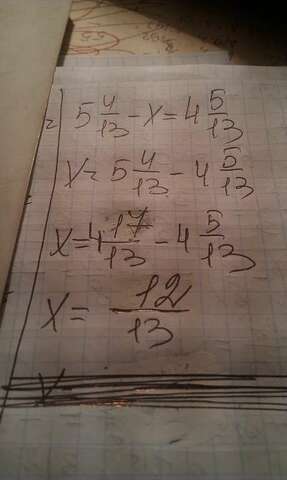 5 4/13 - x = 4 5/13
x = 5 4/13 - 4 5/13
x = 4 17/13 - 4 5/13
x = 12/13